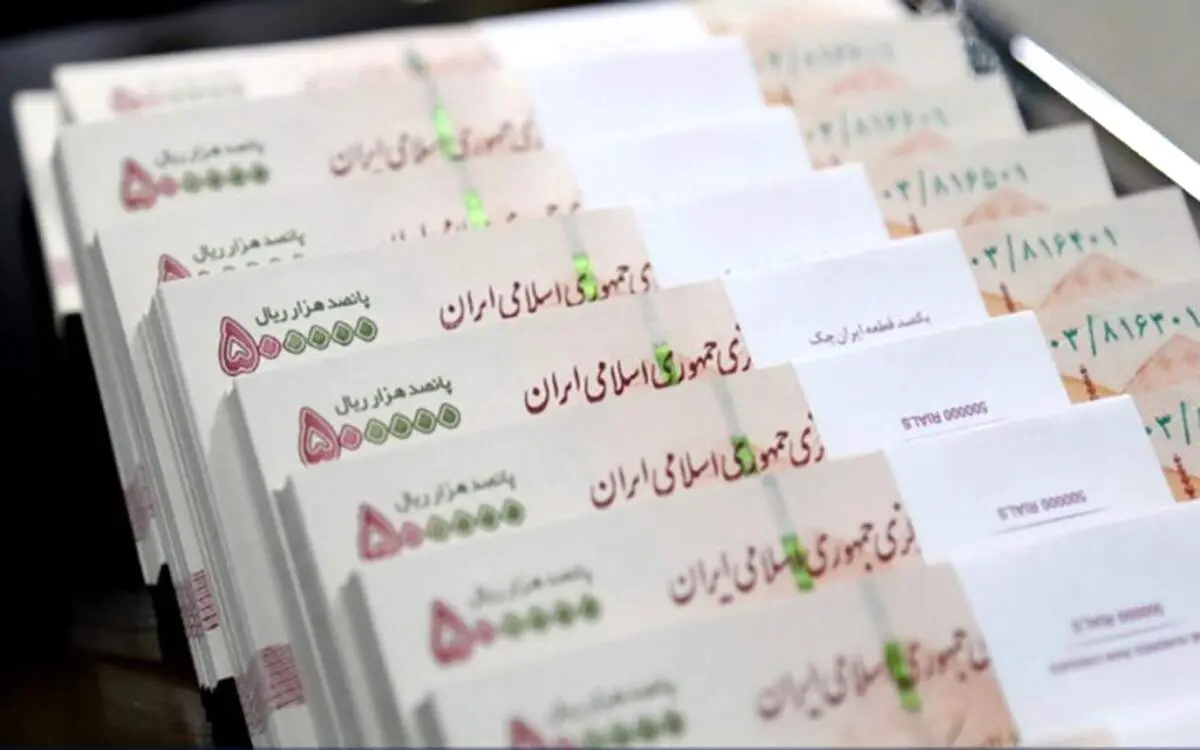 پانصد هزار ریال
۵۰۰۰۰۰
جمهوری اسلامی ایران
۰۳/۸۱۶۶۰۱
پانصد هزار ریال
۰۳/۸۱۶۵۰۱
پانصد هزار ریال
۵۰۰۰۰۰
جمهوری اسلامی ایران
یکصد قطعه ایران چک
۰۳/۸۱۶۴۰۱
پانصد هزار ریال
۵۰۰۰۰۰
زی جمهوری اسلامی ایران
500000 RIALS
۰۳/۸۱۶۳۰۱
پانصد هزار ریال
۵۰۰۰۰۰
زی جمهوری اسلامی ایران
500000 RIALS
۰۳/
پانصد هزار ریال
۵۰۰۰۰۰
کزی جمهوری اسلامی ایران
500000 RIALS
جمهوری اسلامی ایران